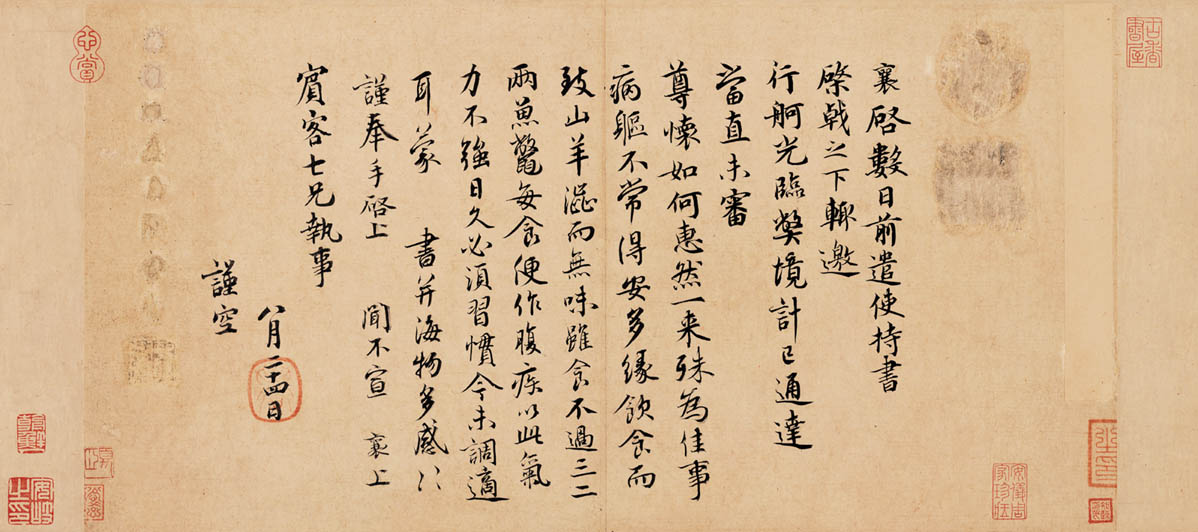 古香書屋
襄啓數日前遣使持書
棨戟之下輙邀
行舸光臨獘境計已通達
當直未審
尊懷如何惠然一来殊為佳事
病軀不常得安多緣飲食而
致山羊澁而無味雖食不過三二
兩魚鼈每食便作腹疾以此氣
力不強日久必須習慣今未調適
耳蒙 書并海物多感〻
謹奉手啓上 聞不宣 襄上
賓客七兄執事
八月二十四日
謹空
安儀周家珍藏
心賞
安岐之印